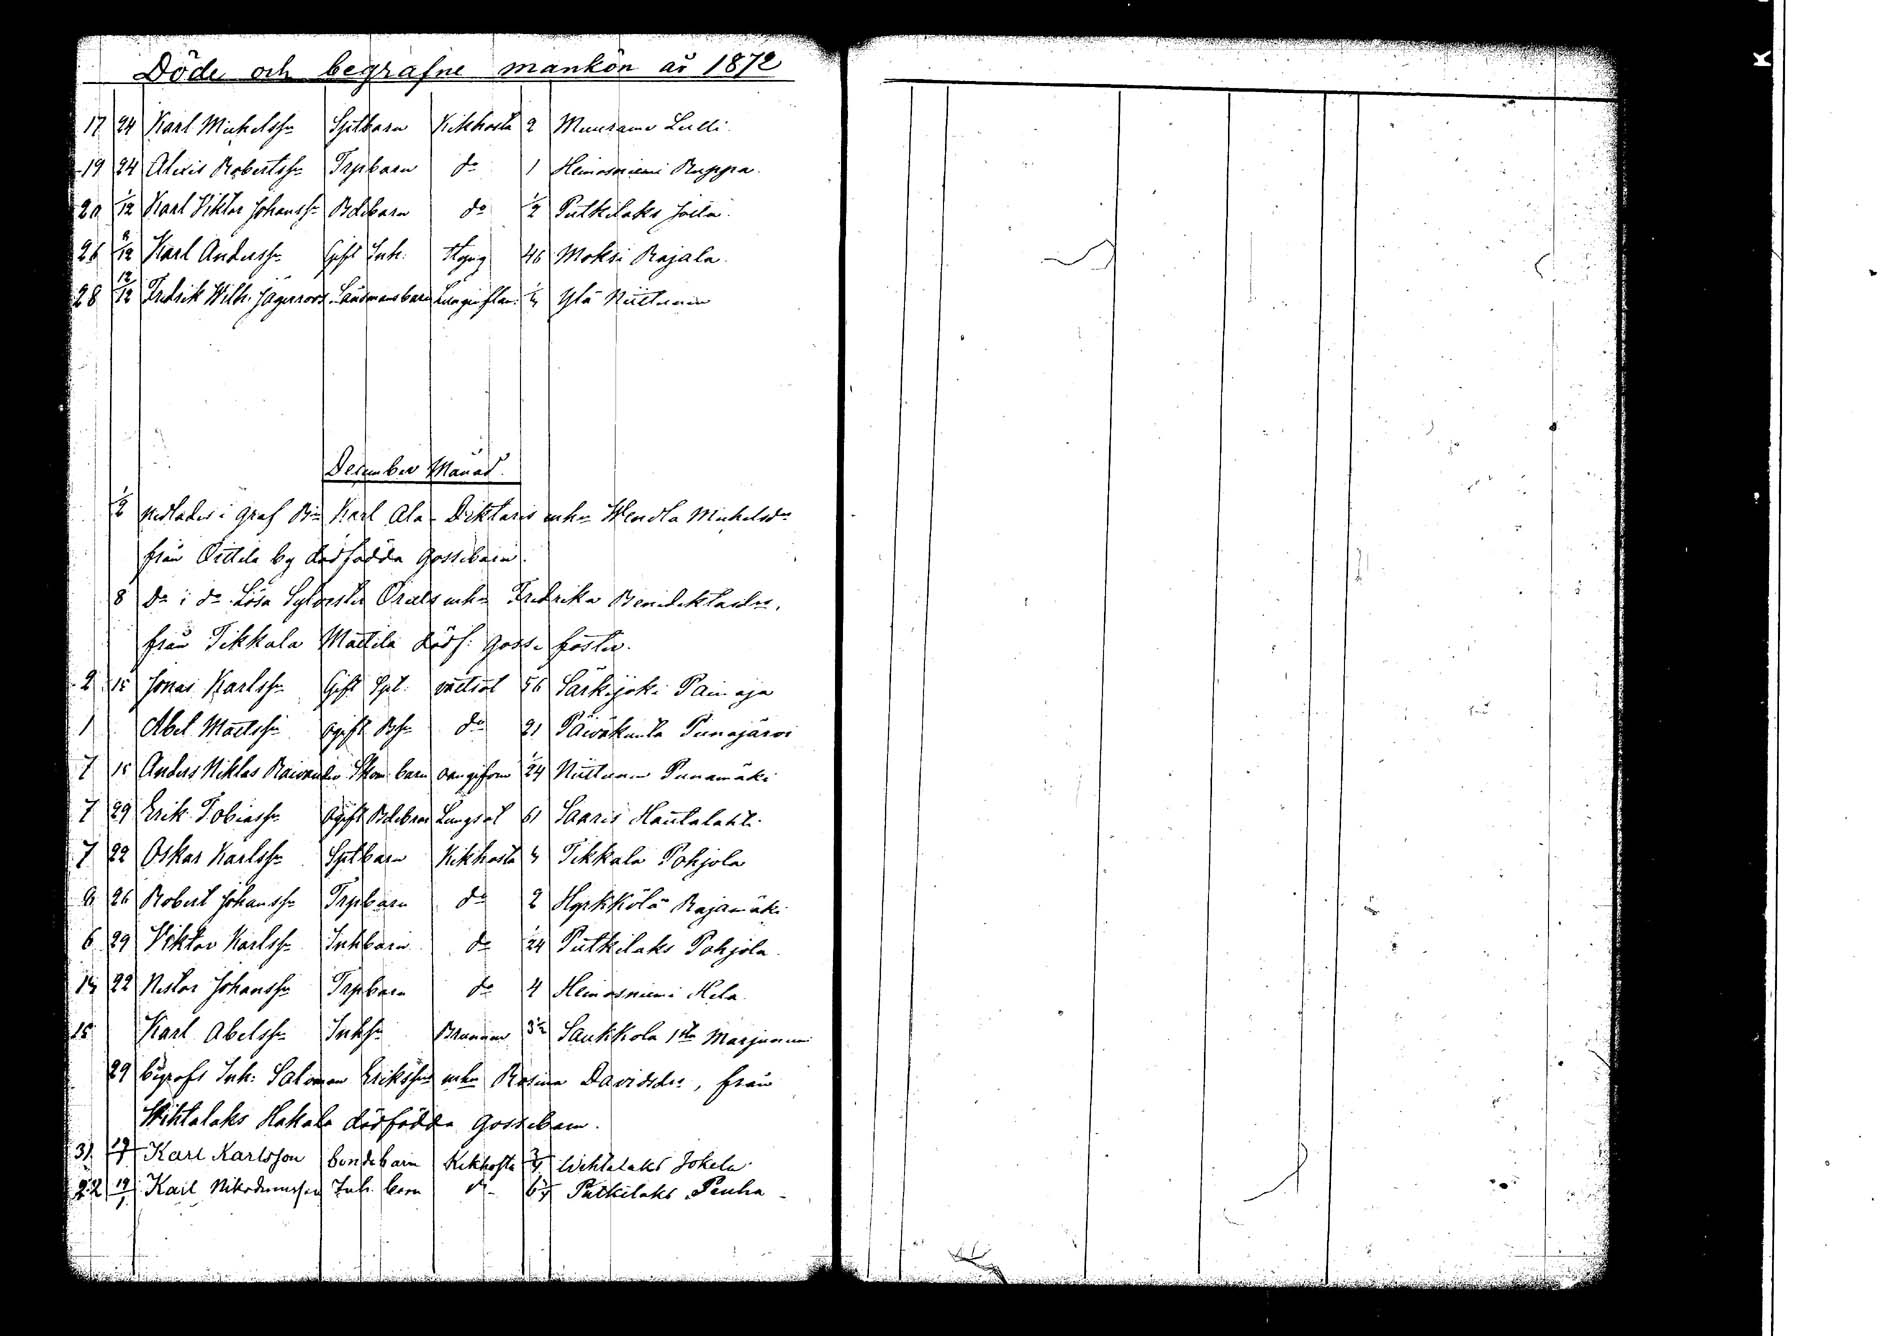 Döde och begrafne mankön år 1872
17 24 Karl Michelss: Sptbarn Kikhosta 2 Muurame Lulli.
19 24 Alexis Robertss: Trpbarn do 1 Heinosniemi Ruppa.
20 1/12 Karl Viktor Johanss: Bdebarn do 1/2 Putkilaks Joela.
26 8/12 Karl Anderss: Gift Inh. Hgng 46 Moksi Rajala.
28 12/12 Fredrik Wilh: Jägerroos Länsmansbarn Lunginflam: Ylä Niittunen
December Månad.
1/2 nedlades i graf Karl Ala-Dikkaris Wendla Michelsdr
från Oittila by dödfödda gossebarn.
8 Do i do Lösa Sylvester Fredrika Benediktsdr,
från Tikkala Mattila dödf: gosse foster.
2 15 Jonas Karlss: Gift Spt. vattsot 56 Särkijoki Painaja
1 Abel Matss: ogift Bs: do 21 Päiväkunta Punajärvi
7 15 Anders Niklas barn oangifven 1/24 Niittunen Punamäki
7 29 Erik Tobiass: ogift Lungsot 61 Saaris Hautalahti
7 22 Oskar Karlss: Sptbarn Kikhosta Tikkala Pohjola
9 26 Robert Johanss: Trpbarn do 2 Hyrkkölä Rajamäki
6 29 Viktor Karlss: Inhbarn do 1/24 Putkilaks Pohjola
22 Nestor Johanss: Trpbarn do 4 Heinosniemi Hela
15 Karl Abelss: Inhs: Brunnen 3 1/2 Saukkola Marjoniemi
29 begrofs Inh: Salomon Erikss: Rosina Davidsdr, från
Wihtalaks Hakala dödfödda gossebarn.
31 Karl Karlsson bondebarn Kikhosta 3/4 Wihtalaks Jokela
22 19/1 Karl Nikodemusson Inh. barn do Putkilaks Penha